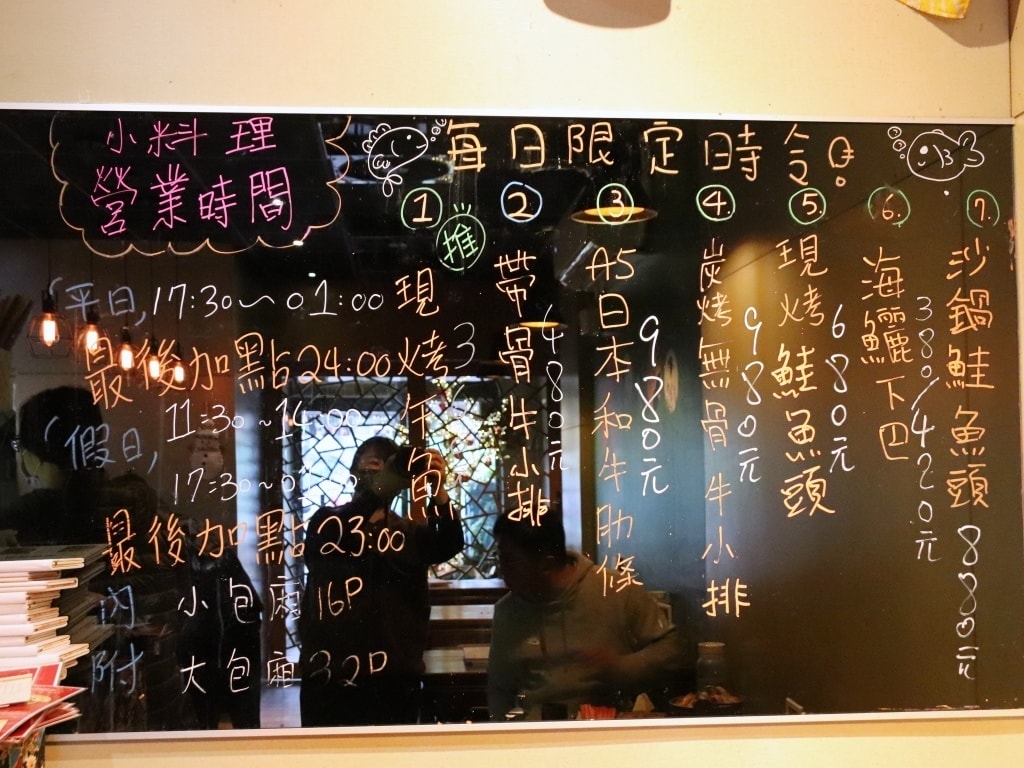 小料理
營業時間
平日, 17:30~01:00
最後加點24:00
假日, 11:30~14:00
17:30~
最後加點23:00
內附
小包廂16P
大包廂32P
每日限定時令!
1 推 現烤午魚 3
2 帶骨牛小排 480元
3 A5日本和牛肋條 980元
4. 炭烤無骨牛小排 980元
5. 現烤鮭魚頭 680元
6. 海鱺下巴 380/420元
7. 沙鍋鮭魚頭 880元